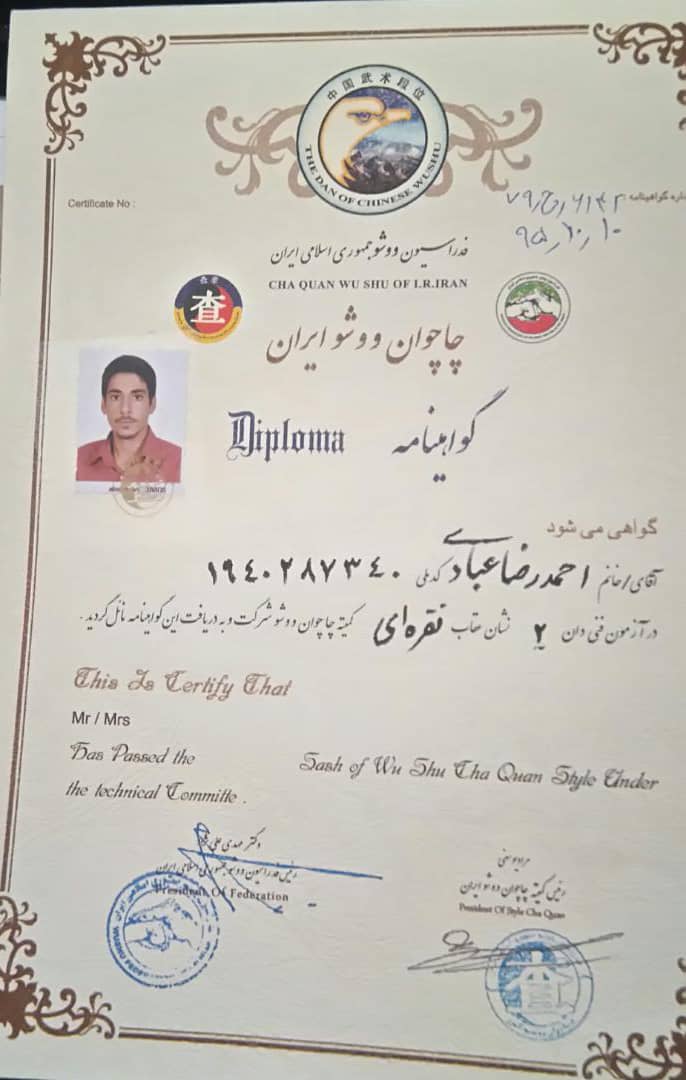 中国武术段位
THE DAN OF CHINESE WUSHU
Certificate No :
شماره گواهینامه
۷۹/ج/۶۱۳۲
۹۵/۱۰/۱۰
فدراسیون ووشو جمهوری اسلامی ایران
CHA QUAN WU SHU OF I.R.IRAN
查
چاچوان ووشو ایران
Diploma
گواهینامه
گواهی می شود
آقای/خانم احمدرضا عبادی کدملی ۱۹۴۰۲۸۷۳۴۰
در آزمون فنی دان ۲ نشان عقاب نقره‌ای کمیته چاچوان ووشو شرکت و به دریافت این گواهینامه نائل گردید.
This Is Certify That
Mr / Mrs
Has Passed the Sash of Wu Shu Cha Quan Style Under
the technical Committe .
دکتر مهدی علی نژاد
رئیس فدراسیون ووشو جمهوری اسلامی ایران
President Of Federation
رئیس کمیته چاچوان ووشو ایران
President Of Style Cha Quan